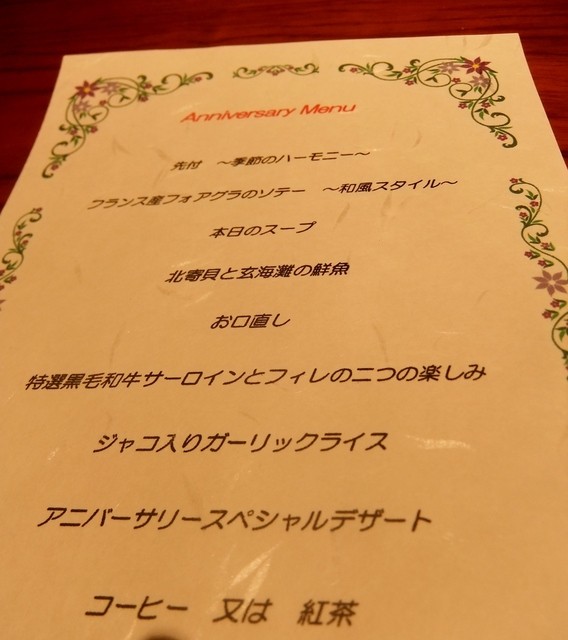 Anniversary Menu
先付　～季節のハーモニー～
フランス産フォアグラのソテー　～和風スタイル～
本日のスープ
北寄貝と玄海灘の鮮魚
お口直し
特選黒毛和牛サーロインとフィレの二つの楽しみ
ジャコ入りガーリックライス
アニバーサリースペシャルデザート
コーヒー　又は　紅茶